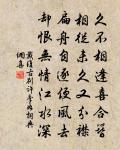 久不相逢喜合簪
相從未久又分襟
扁舟自逐便風去
卻恨無情江水深
戴復古